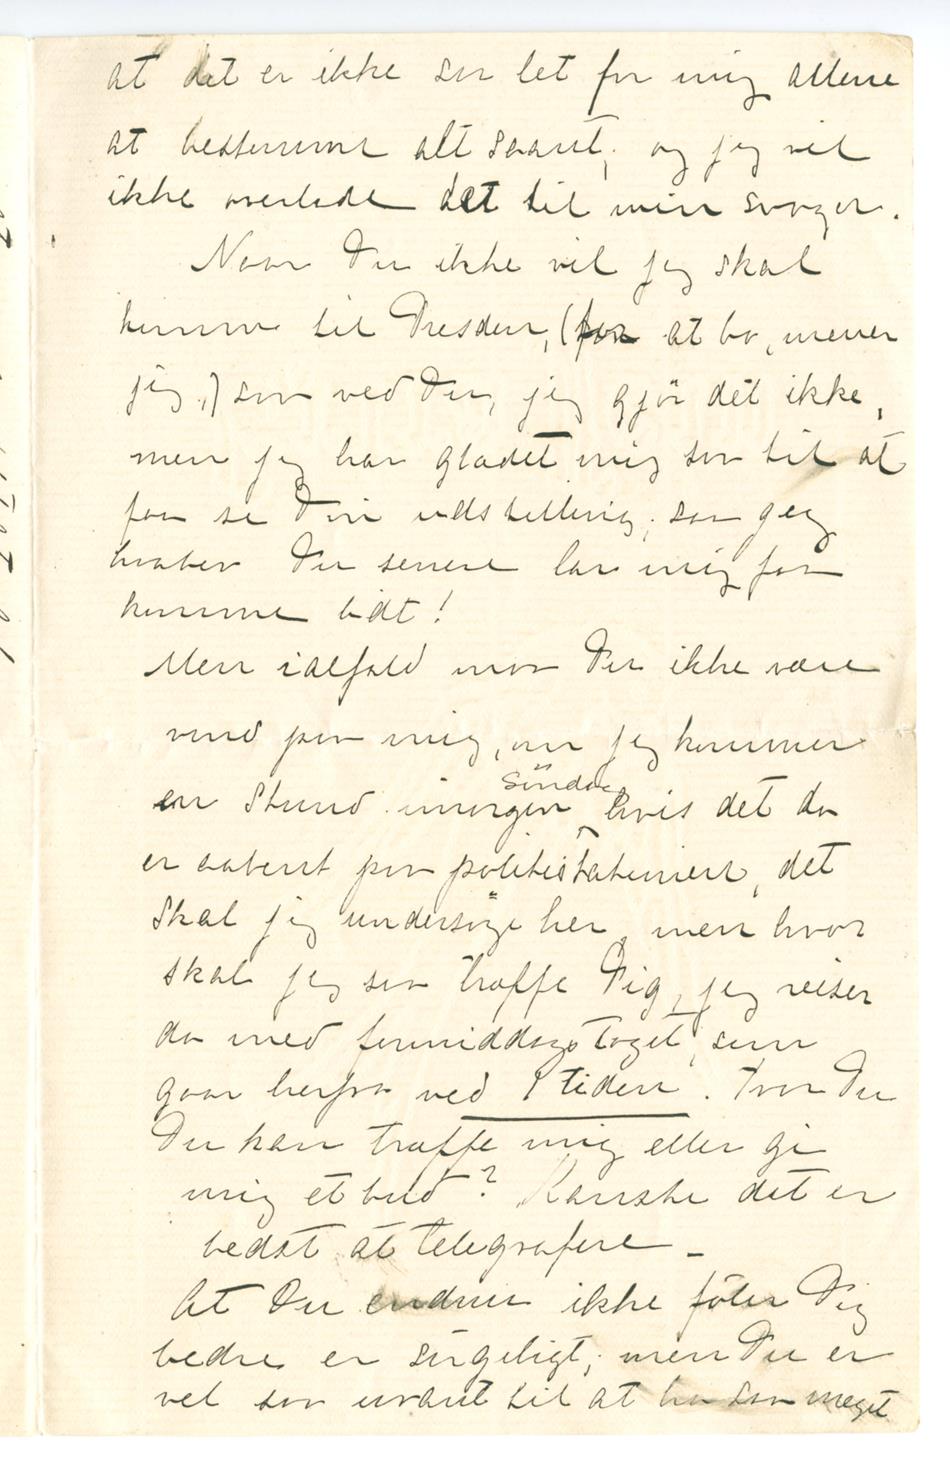 at det er ikke saa let for mig allene
at bestemme alt saant, og jeg vil
ikke overlade det til min svoger.
Naar Du ikke vil jeg skal
komme til Dresden, (for at bo, mener
jeg,) saa ved Du, jeg gjør det ikke,
men jeg har glædet mig saa til at
faa se Din udstilling, saa jeg
haaber Du senere lar mig faa
komme lidt!
Men ialfald maa Du ikke være
vred paa mig, om jeg kommer
søndag
en stund imorgen hvis det da
er aabent paa politistationen, det
skal jeg undersøge her, men hvor
skal jeg saa træffe Dig, jeg reiser
da med formiddagstoget, som
gaar herfra ved 1 tiden. Tror Du
Du kan træffe mig eller gi
mig et bud? Kanske det er
bedst at telegrafere –
At Du endnu ikke føler Dig
bedre er sørgeligt, men Du er
vel saa uvant til at ha saa meget